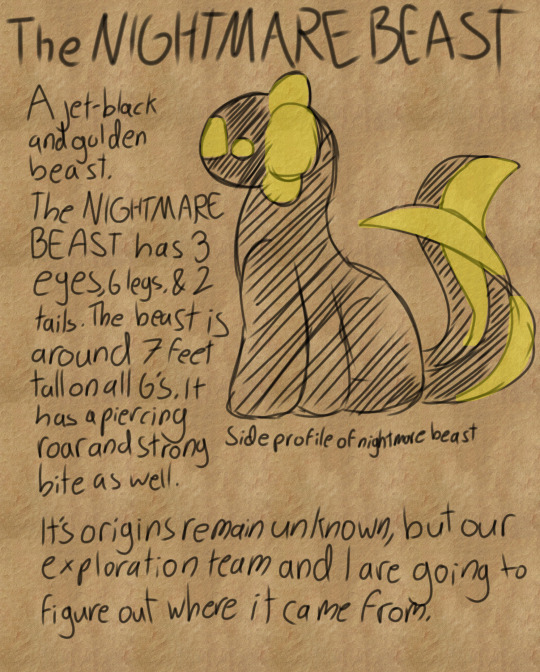 The NIGHTMARE BEAST
A jet-black
and golden
beast.
The NIGHTMARE
BEAST has 3
eyes, 6 legs, & 2
tails. The beast is
around 7 feet
tall on all 6's. It
has a piercing
roar and strong
bite as well.
Side profile of nightmare beast
It's origins remain unknown, but our
exploration team and I are going to
figure out where it came from.